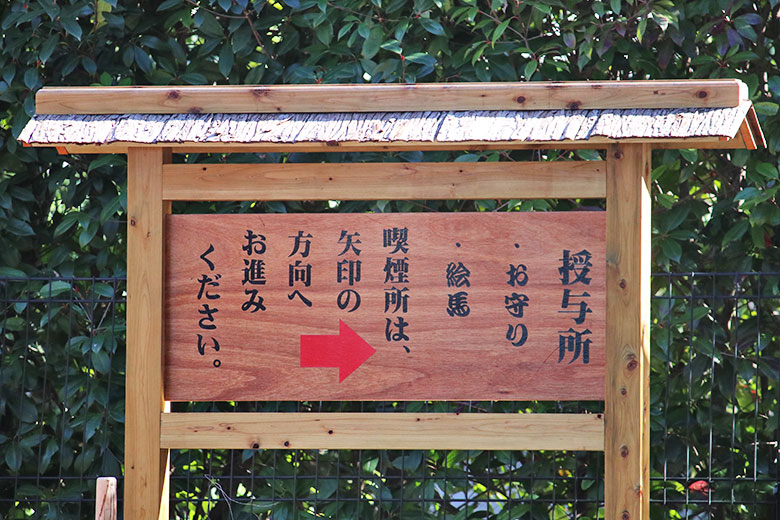 授与所
・お守り
・絵馬
喫煙所は、
矢印の
方向へ
お進み
ください。